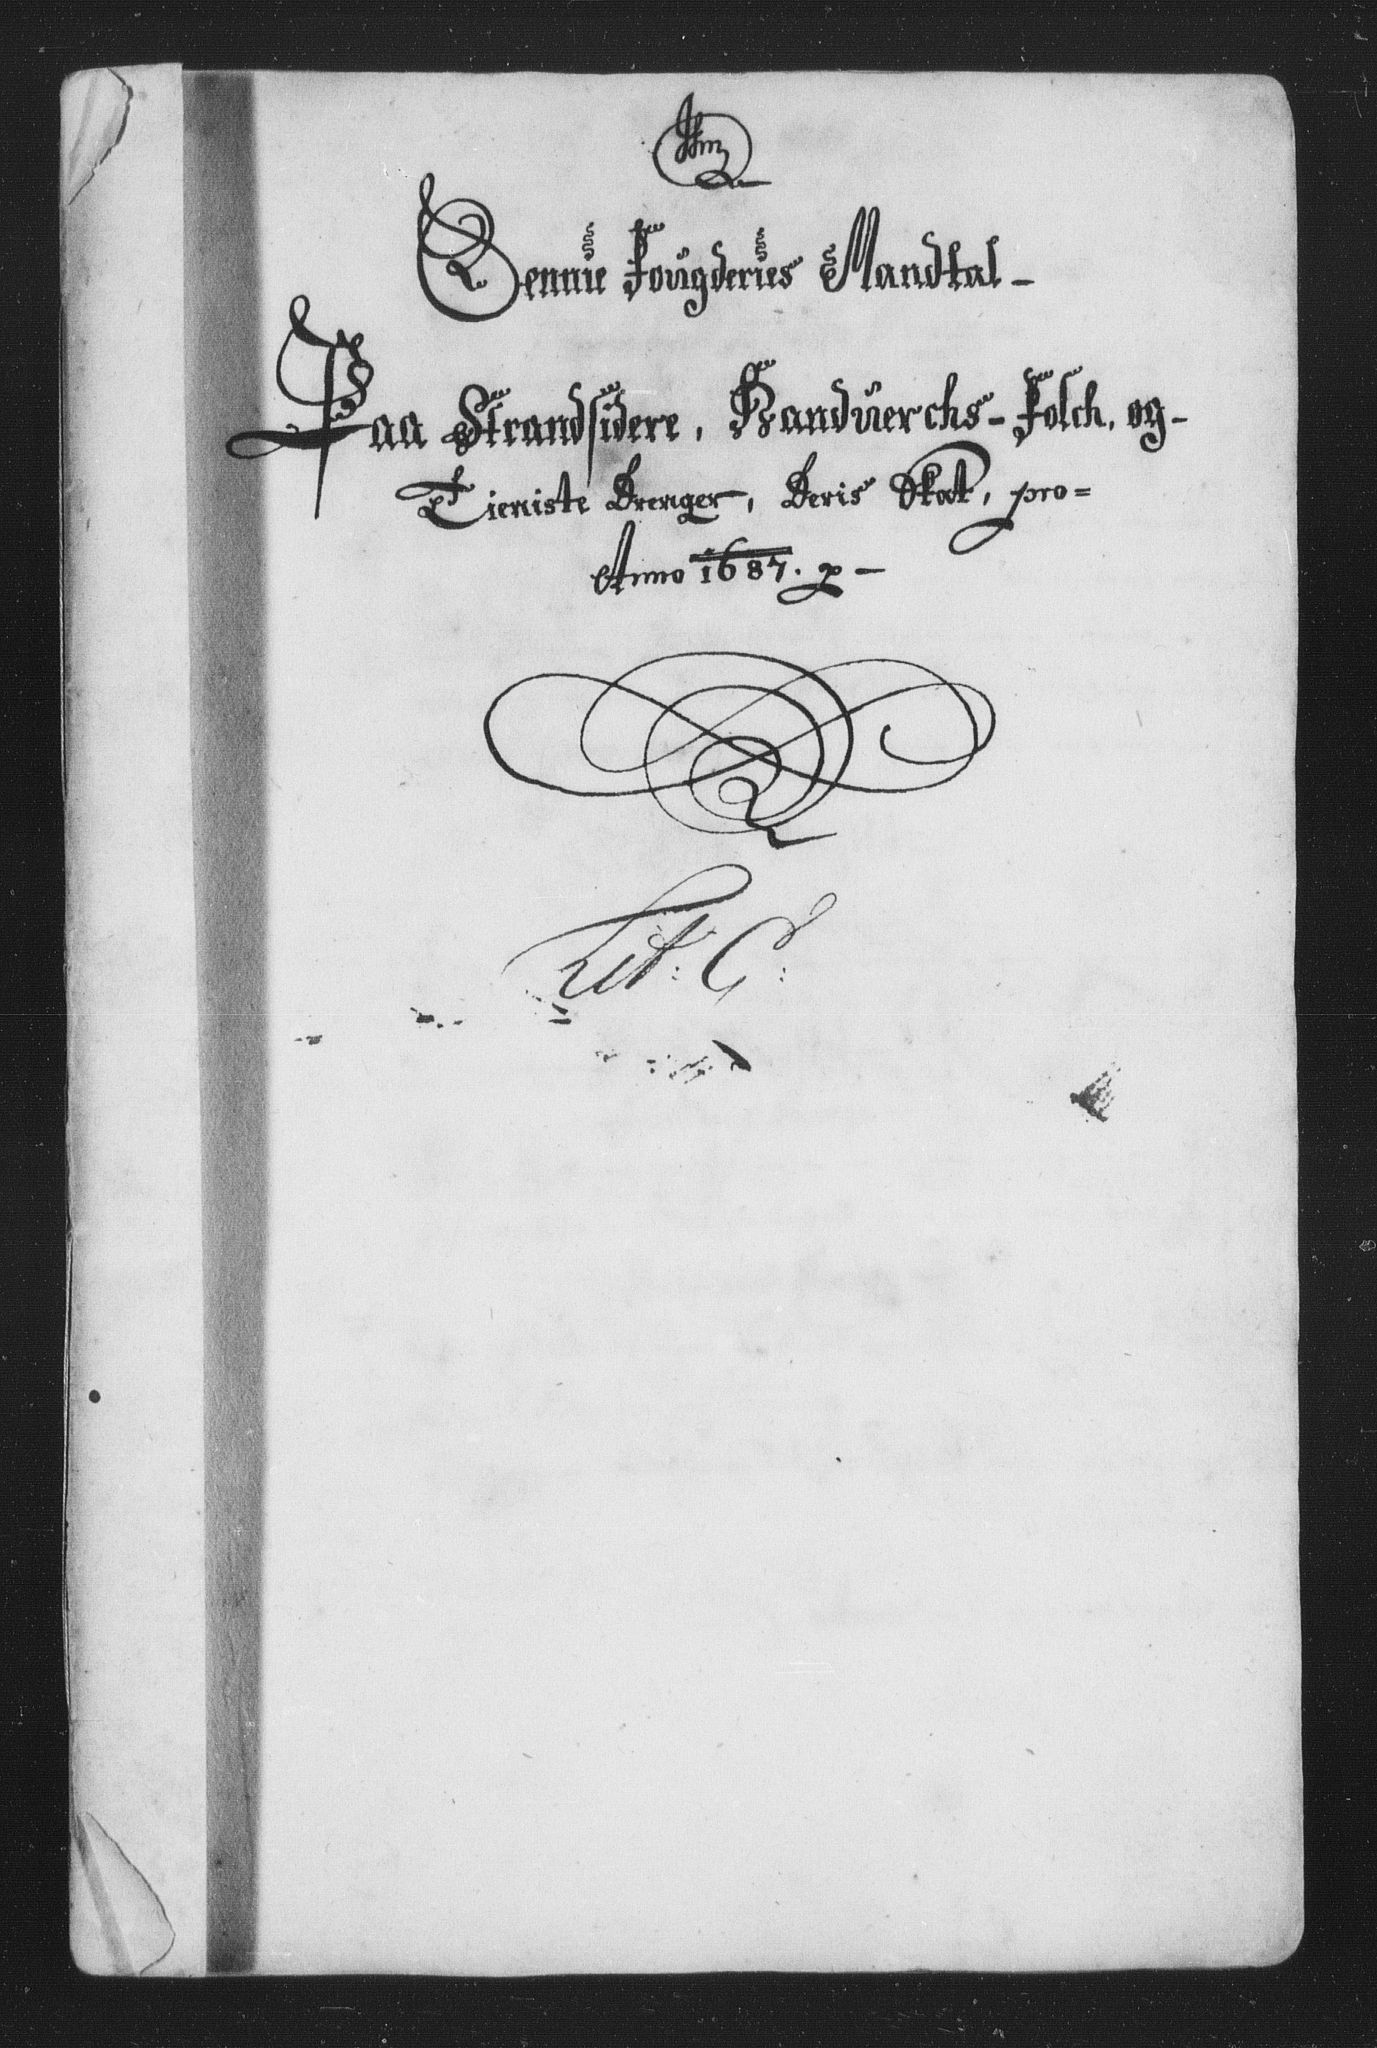 Dennie Fougderies Mandtal -
Paa Strandsidere, Handverchs - Folch, og -
Tieniste Drenger, Deris Skat, pro =
Anno 1687.
Lit: C: